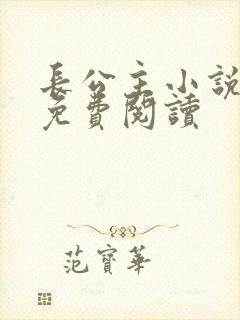 長公主小說
免費閱讀
范寶華